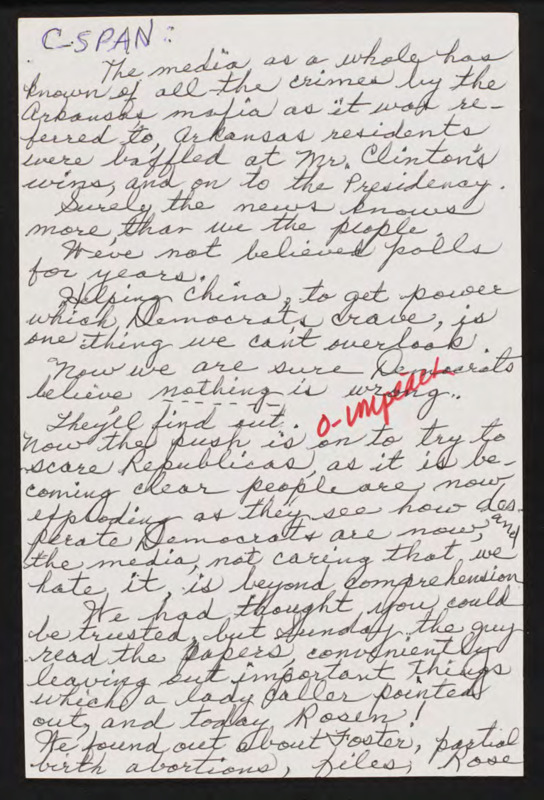 C-SPAN:
The media as a whole has
known of all the crimes by the
Arkansas mafia as it was re-
ferred to, Arkansas residents
were baffled at Mr. Clinton's
wins, and on to the Presidency.
Surely the news knows
more than we the people.
We've not believed polls
for years.
Helping China, to get power
which Democrats crave, is
one thing we can't overlook
Now we are sure Democrats
believe nothing is wrong..
O-impeach
They'll find out.
Now the push is on to try to
scare Republicas, as it is be-
coming clear people are now
exploding as they see how des-
perate Democrats are now, and
the media, not caring that we
hate it, is beyond comprehension
We had thought you could
be trusted, but Sunday the guy
read the papers conveniently
leaving out important things
which a lady caller pointed
out, and today Rosen!
We found out about Foster, partial
birth abortions, files, Rose